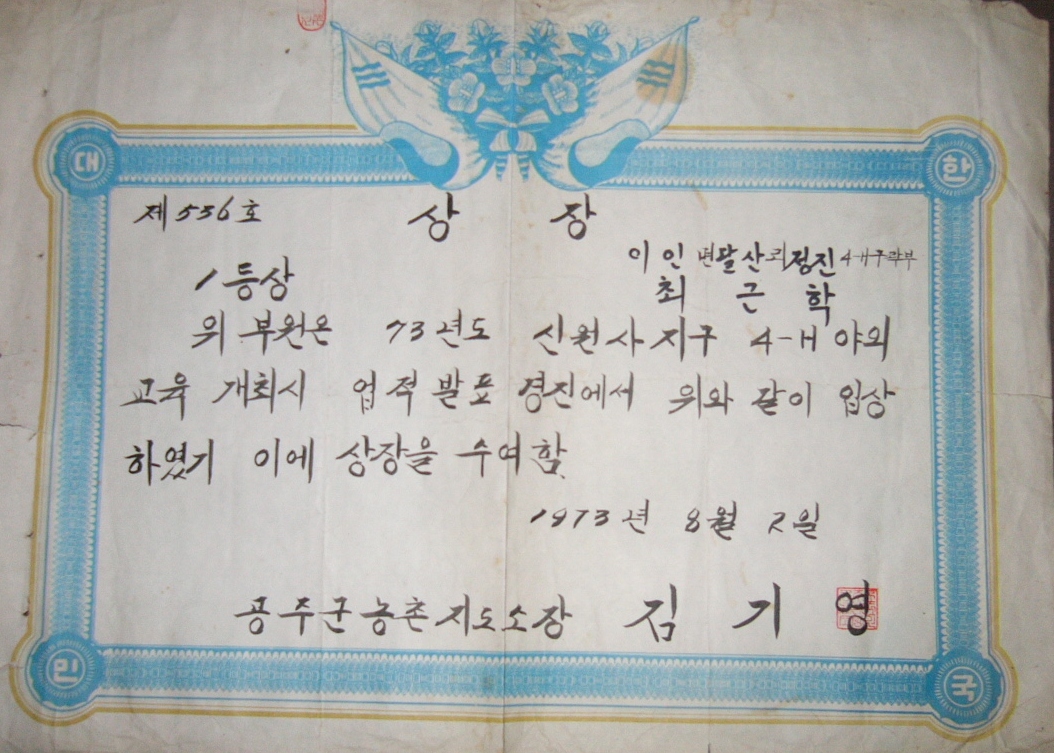 대 한
제 556 호 상 장
이인 면 달산 리 정진 4-H 구락부
1등상
최 근 학
위 부원은 73년도 신원사지구 4-H 야외
교육 개최시 업적 발표 경진에서 위와 같이 입상
하였기 이에 상장을 수여함
1973년 8월 2일
공주군농촌지도소장 김 기 영
민 국